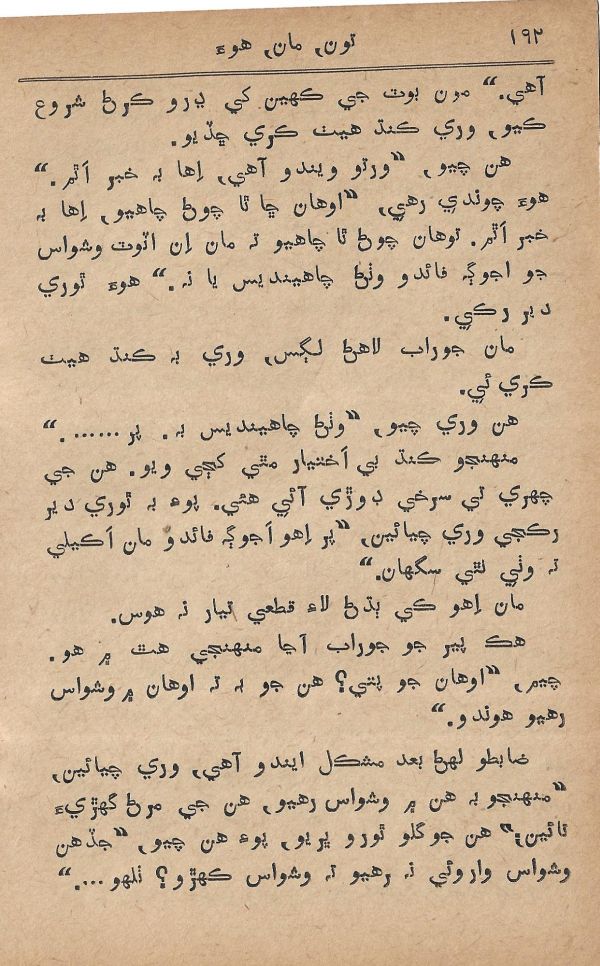 ۱۹۲
تون، مان، هوءَ
آهي.“ مون بوٽ جي ڪهين کي ڍرو ڪرڻ شروع
ڪيو، وري ڪنڌ هيٺ ڪري ڇڏيو.
هن چيو، ”ورتو ويندو آهي، اِها به خبر اَٿم.“
هوءَ چوندي رهي، ”اوهان ڇا ٿا چوڻ چاهيو، اِها به
خبر اَٿم. توهان چوڻ ٿا چاهيو ته مان اِن اٽوٽ وشواس
جو اجوڳه فائدو وٺڻ چاهينديس يا نه.“ هوءَ ٿوري
دير رڪي.
مان جوراب لاهڻ لڳس، وري به ڪنڌ هيٺ
ڪري ئي.
هن وري چيو، ”وٺڻ چاهينديس به. پر.......“
منهنجو ڪنڌ بي اَختيار مٿي کڄي ويو. هن جي
چهري تي سرخي ڊوڙي آئي هئي. پوءِ به ٿوري دير
رڪجي وري چيائين، ”پر اِهو اَجوڳه فائدو مان اَڪيلي
ته وٺي نٿي سگهان.“
مان اِهو کي ٻڌڻ لاءِ قطعي تيار نه هوس.
هڪ پير جو جوراب اڃا منهنجي هٿ ۾ هو.
چيم، ”اوهان جو پتي؟ هن جو به ته اوهان ۾ وشواس
رهيو هوندو.“
ضابطو لهڻ بعد مشڪل ايندو آهي، وري چيائين،
”منهنجو به هن ۾ وشواس رهيو، هن جي مرڻ گهڙيءَ
تائين؛“ هن جو گلو ٿورو ڀريو، پوءِ هن چيو، ”جڏهن
وشواس وارو ئي نه رهيو ته وشواس ڪهڙو؟ تلهو....“